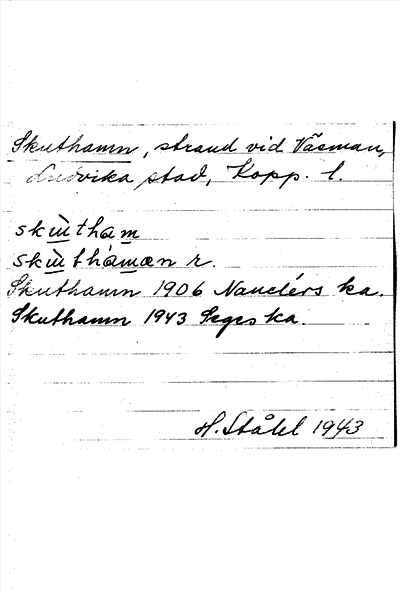 Skuthamn, strand vid Väsman,
Ludvika stad, Kopp. l.
skùtham
skùthàmæn r.
Skuthamn 1906 Nauclérs ka.
Skuthamn 1943 Sgrs ka.
H. Ståhl 1943